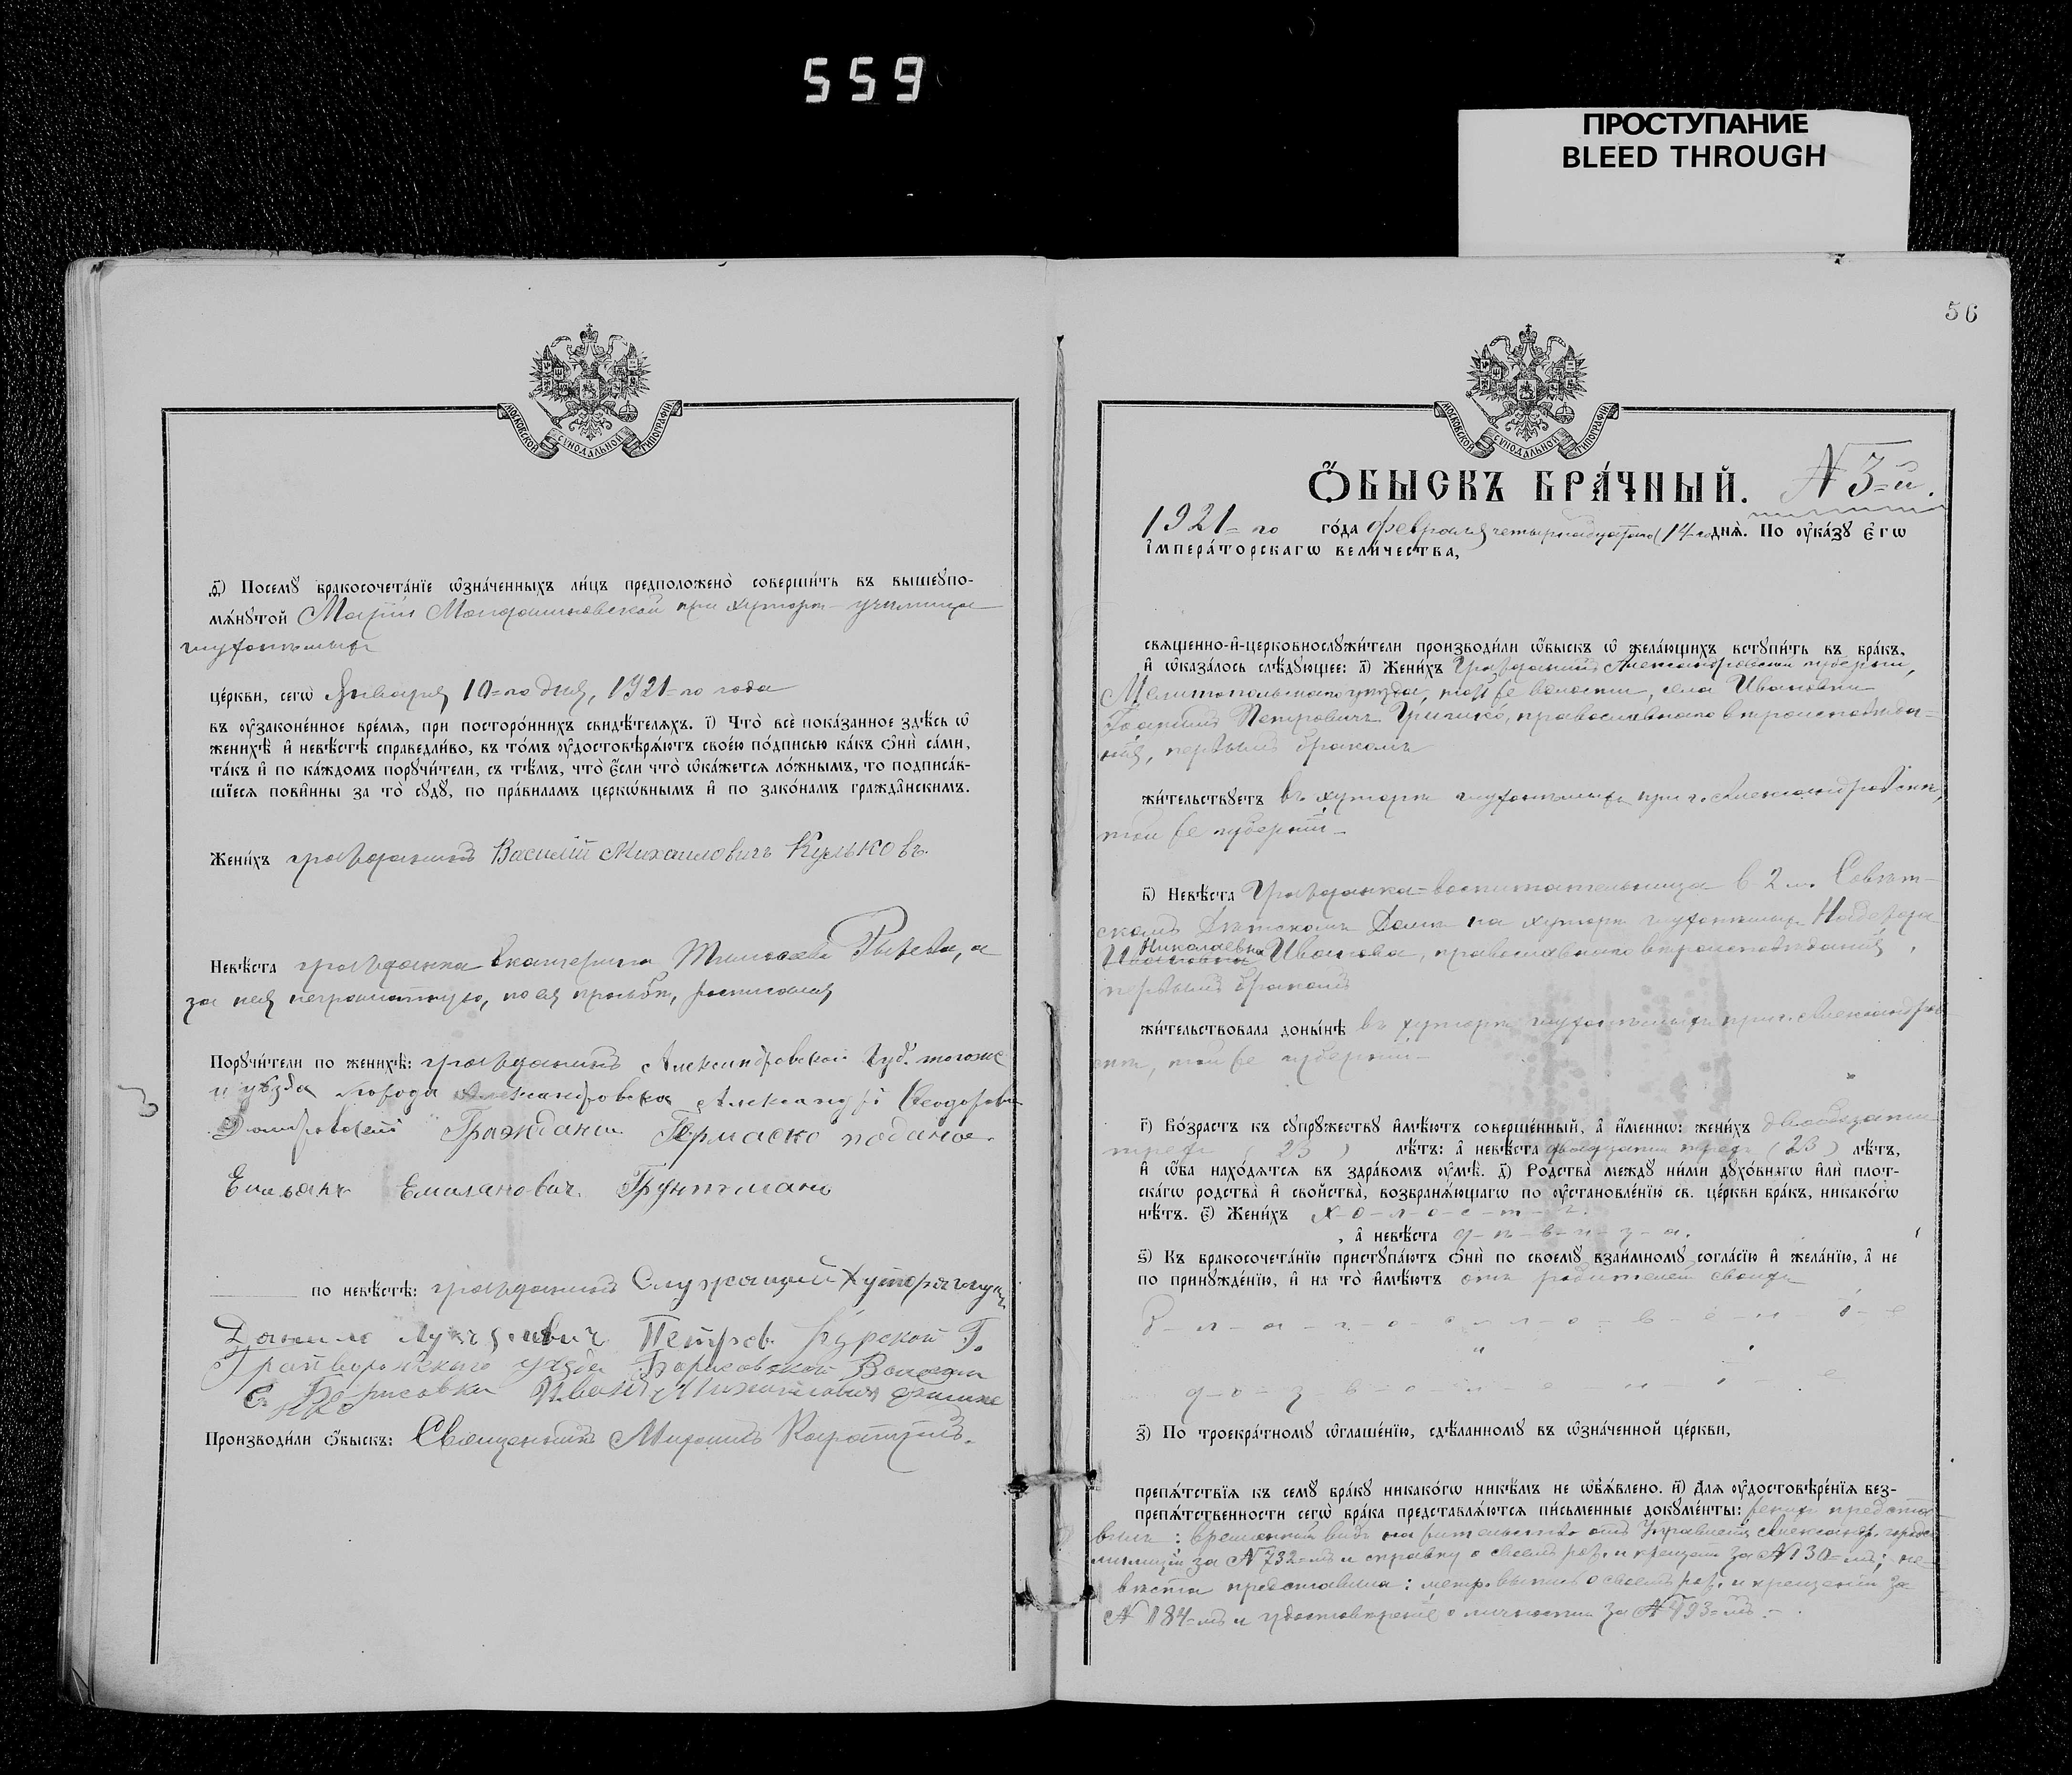 559
ПРОСТУПАНИЕ
BLEED THROUGH
МОСКОВСКОЙ СѴНОДАЛЬНОЙ ТИПОГРАФІИ
Ѳ҃) Посемꙋ̀ бракосочета́нїе ѡ҆зна́ченныхъ ли́цъ предположено̀ соверши́ть въ вышеꙋпо-
мѧ́нꙋтой Маріи при хуторѣ - училища
це́ркви, сегѡ̀ Января 10=го дня, 1921=го года
въ ᲂу҆законе́нное вре́мѧ, при посторо́ннихъ свидѣ́телѧхъ. І҃) Что̀ всѐ пока́занное здѣ́сь ѡ҆
женихѣ̀ и҆ невѣ́стѣ справедли́во, въ то́мъ ᲂу҆достовѣрѧ́ютъ свое́ю по́дписью ка́къ ѻ҆нѝ са́ми,
та́къ и҆ по ка́ждомъ порꙋчи́тели, съ тѣ́мъ, что̀ є҆́сли что̀ ѡ҆ка́жетсѧ ло́жнымъ, то подписа́в-
шїесѧ пови́нны за то̀ сꙋдꙋ̀, по пра́виламъ церкѡ́внымъ и҆ по зако́намъ гражда́нскимъ.
Жени́хъ гражданинъ Василій Михаиловичъ Кульковъ.
Невѣ́ста гражданка Екатерина а
за нея неграмотную, по ея просьбѣ, росписался
Порꙋчи́тели по женихѣ̀: гражданинъ Александровской Губ. тогоже
и уѣзда города Александровска Александръ Ѳеодоровъ
Домбровскій Гражданин
Емельянович
по невѣ́стѣ: гражданинъ Служащій
Петров Курской Г.
Грайворонскаго уѣзда Борисовской Волости
с. Борисовки Иванъ Михайлович
Производи́ли ѻ҆́быскъ: Священникъ Миронъ
56
МОСКОВСКОЙ СѴНОДАЛЬНОЙ ТИПОГРАФІИ
Ѻ҆́БЫСКЪ БРА́ЧНЫЙ. N 3=й.
1921=го го́да февраля четырнадцатаго (14=го днѧ̀. По ᲂу҆ка́зꙋ Є҆гѡ̀
І҆мпера́торскагѡ вели́чества,
свѧщенно-и҆-церковнослꙋжи́тели производи́ли ѡ҆́быскъ ѡ҆ жела́ющихъ встꙋпи́ть въ бра́къ,
и҆ ѡ҆каза́лось слѣ́дꙋющее: а҃) Жени́хъ Гражданинъ Александровской губерніи,
Мелитопольскаго уѣзда, той же волости, села Ивановки
Іоаннъ Петровичъ православнаго вѣроисповѣда=
нія, первымъ бракомъ
жи́тельствꙋетъ въ хуторѣ при г. Александровскѣ,
той же губерніи -
в҃) Невѣ́ста Гражданка=воспитательница в 2 м. Совѣт-
скомъ Дѣтскомъ Домѣ на хуторѣ Надежда
Николаевна Иванова, православнаго вѣроисповѣданія,
первымъ бракомъ
жи́тельствовала доны́нѣ въ хуторѣ при г. Александров-
скѣ, той же губерніи -
г҃) Во́зрастъ къ сꙋпрꙋ́жествꙋ и҆мѣ́ютъ соверше́нный, а҆ и҆́меннѡ: жени́хъ двадцати
трехъ ( 23 ) лѣ́тъ: а҆ невѣ́ста двадцати трехъ ( 23 ) лѣ́тъ,
и҆ ѡ҆́ба нахо́дѧтсѧ въ здра́вомъ ᲂу҆мѣ̀. д҃) Родства̀ междꙋ ни́ми дꙋхо́внагѡ и҆лѝ плот-
ска́гѡ родства̀ и҆ свойства̀, возбранѧ́ющагѡ по ᲂу҆становле́нїю св. це́ркви бра́къ, никако́гѡ
нѣ́тъ. є҃) Жени́хъ х-о-л-о-с-т-ъ.
, а҆ невѣ́ста д-ѣ-в-и-ц-а.
ѕ҃) Къ бракосочета́нїю пристꙋпа́ютъ ѻ҆нѝ по своемꙋ̀ взаи́мномꙋ согла́сїю и҆ жела́нїю, а҆ не
по принꙋжде́нїю, и҆ на то̀ и҆мѣ́ютъ отъ родителей своихъ
б-л-а-г-о-с-л-о-в-е-н-і-е
"
д-о-з-в-о-л-е-н-і-е
з҃) По троекра́тномꙋ ѡ҆глаше́нїю, сдѣ́ланномꙋ въ ѡ҆зна́ченной це́ркви,
препѧ́тствїѧ къ семꙋ̀ бра́кꙋ никако́гѡ никѣ́мъ не ѡ҆бъѧ́влено. и҃) Длѧ ᲂу҆достовѣре́нїѧ без-
препѧ́тственности сегѡ̀ бра́ка представлѧ́ютсѧ пи́сьменные докꙋме́нты: женихъ предста-
вилъ: временный видъ на жительство отъ Управленія Александр. город.
милиціи за N 732=мъ и справку о своемъ рож. и крещеніи за N 130=мъ; не-
вѣста представила: метр. выпись о своемъ рож. и крещеніи за
N 184=мъ и удостовѣреніе о личности за N 493=мъ. -